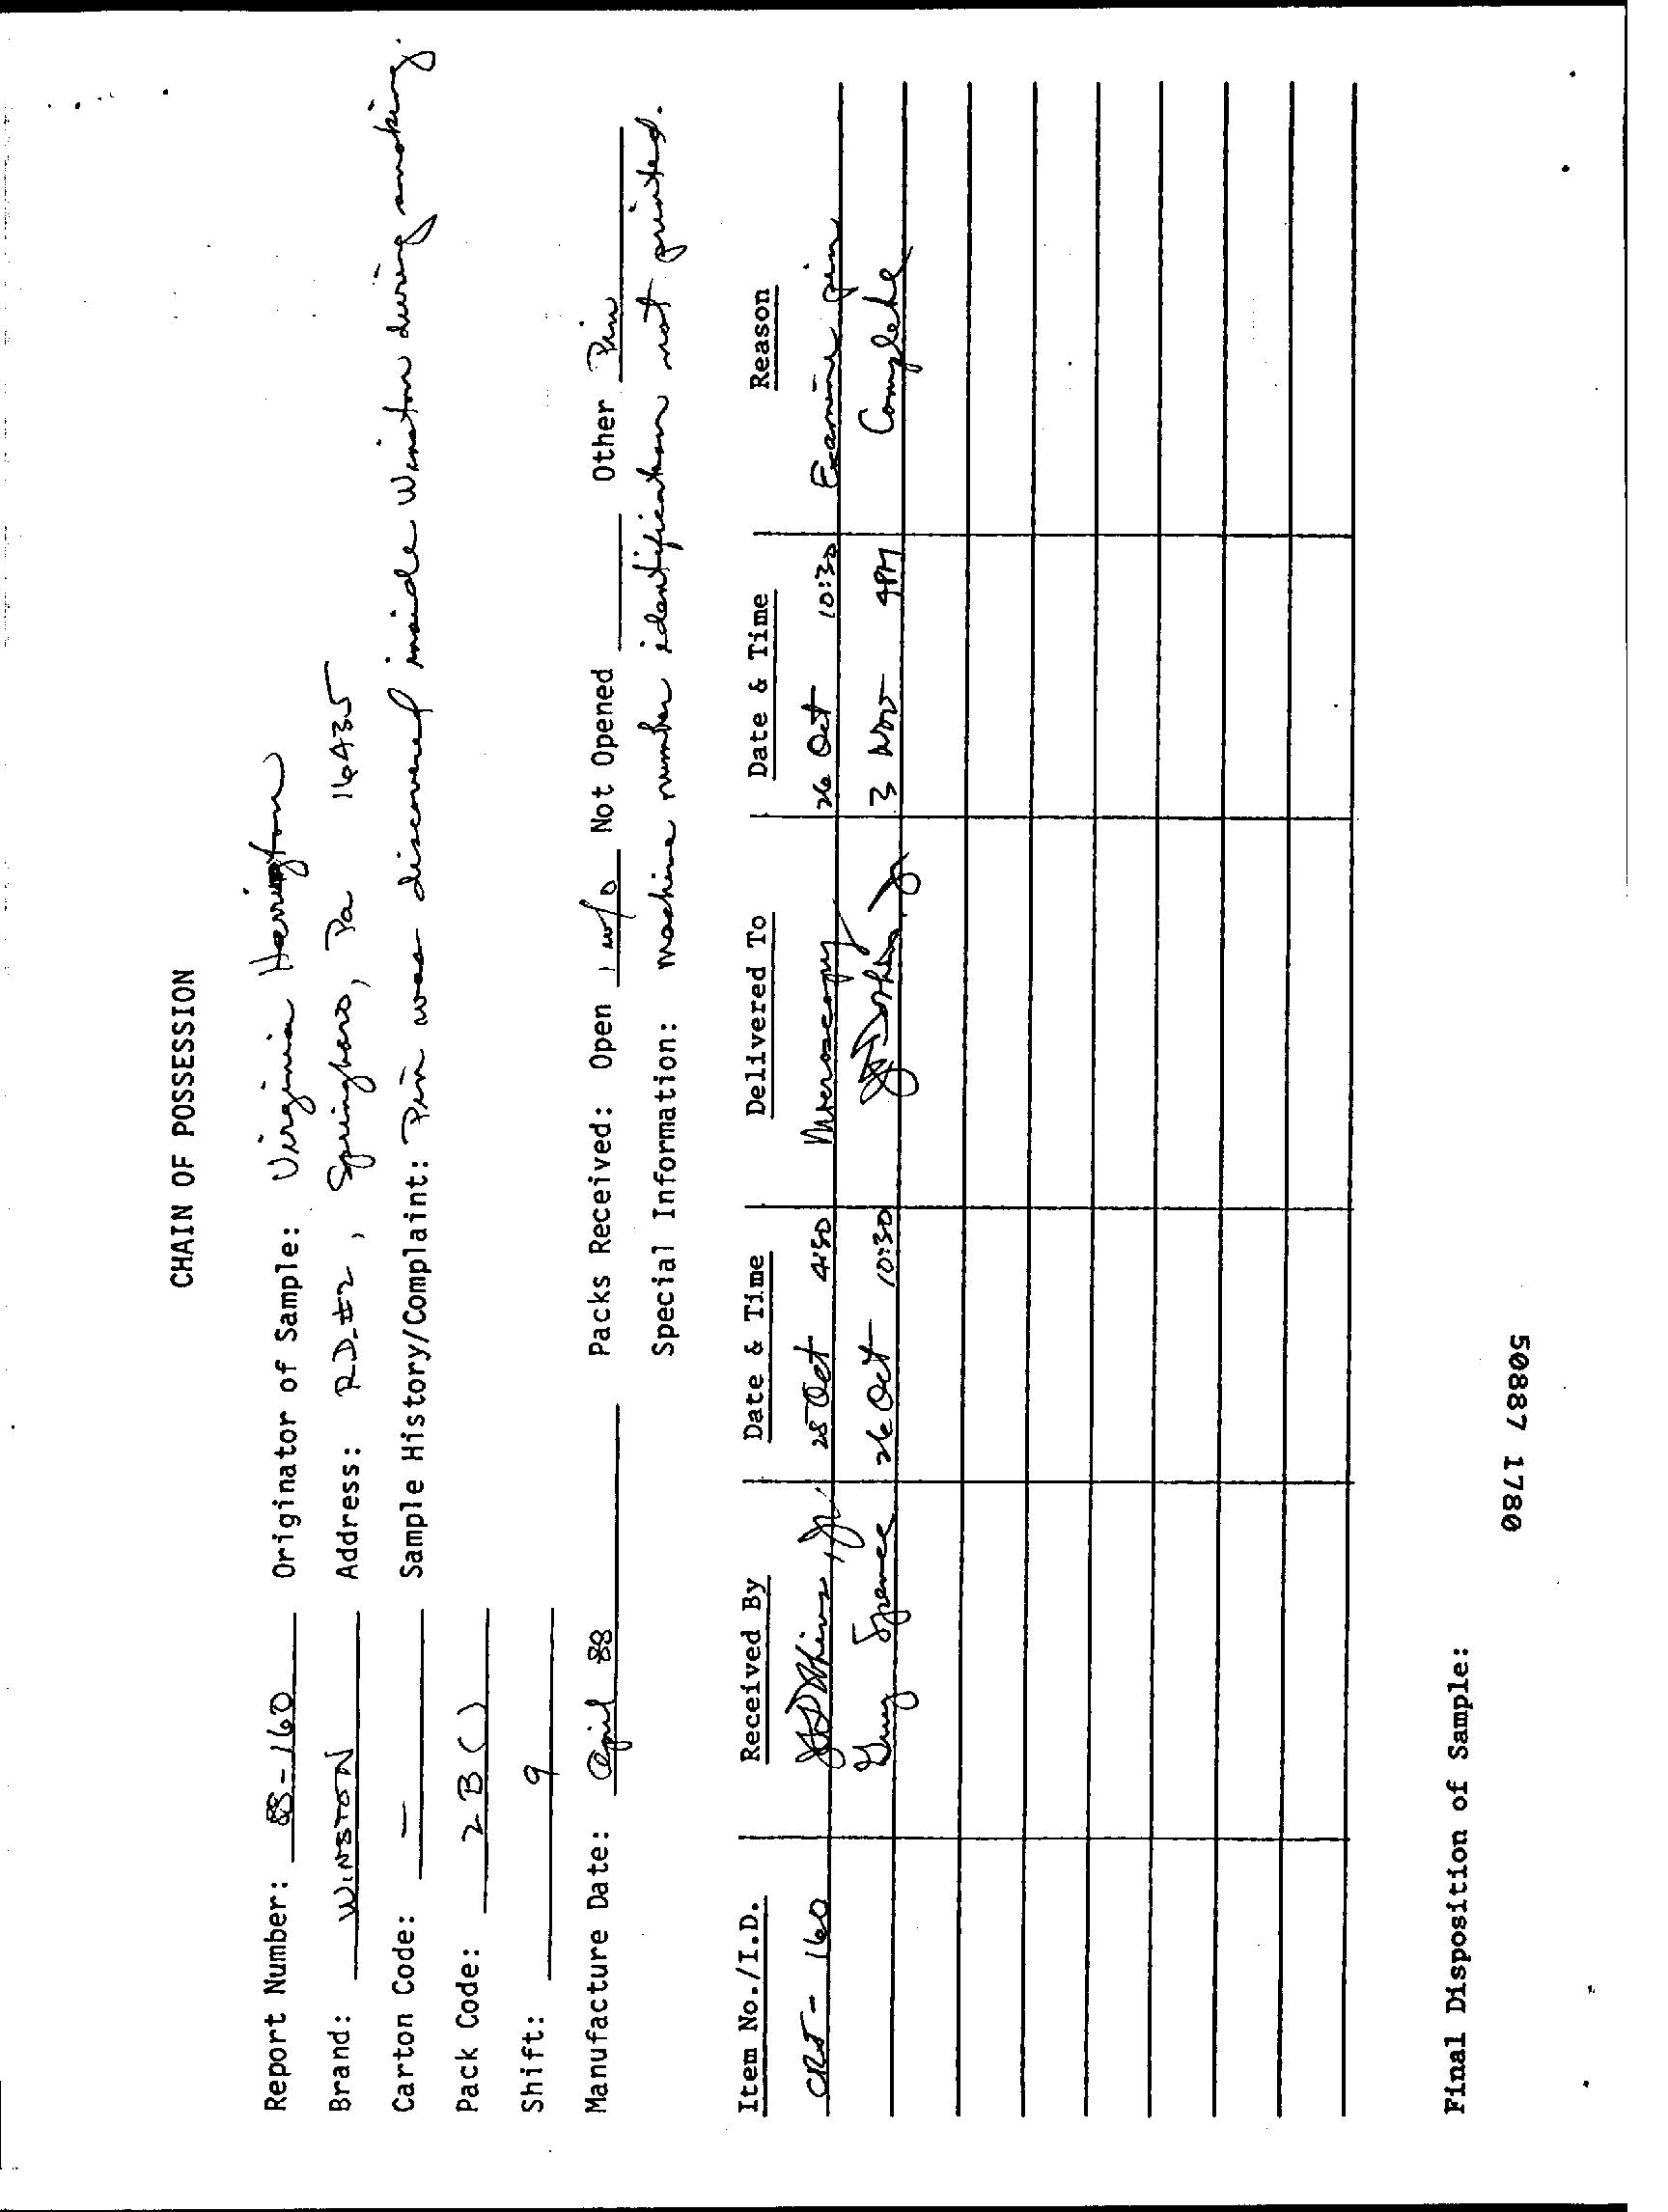 CHAIN OF POSSESSION
Report Number: 88-160 Originator of Sample: Virginia Herrington
Brand: WINSTON Address: RD#2, Springboro, Pa 16435
Carton Code: — Sample History/Complaint: Pin was discovered inside Winston during smoking.
Pack Code: 2B()
Shift: 9
Manufacture Date: April 88 Packs Received: Open 1 w/o Not Opened Other Pin
Special Information: machine number identification not printed.
Item No./I.D. Received By Date & Time Delivered To Date & Time Reason
CRT-160 Jr. Oct 4:50 Microscopy 26 Oct 10:30 Examine pin
Guy Spence 26 Oct 10:30 3 Nov 4PM Complete
Final Disposition of Sample:
50887 1780